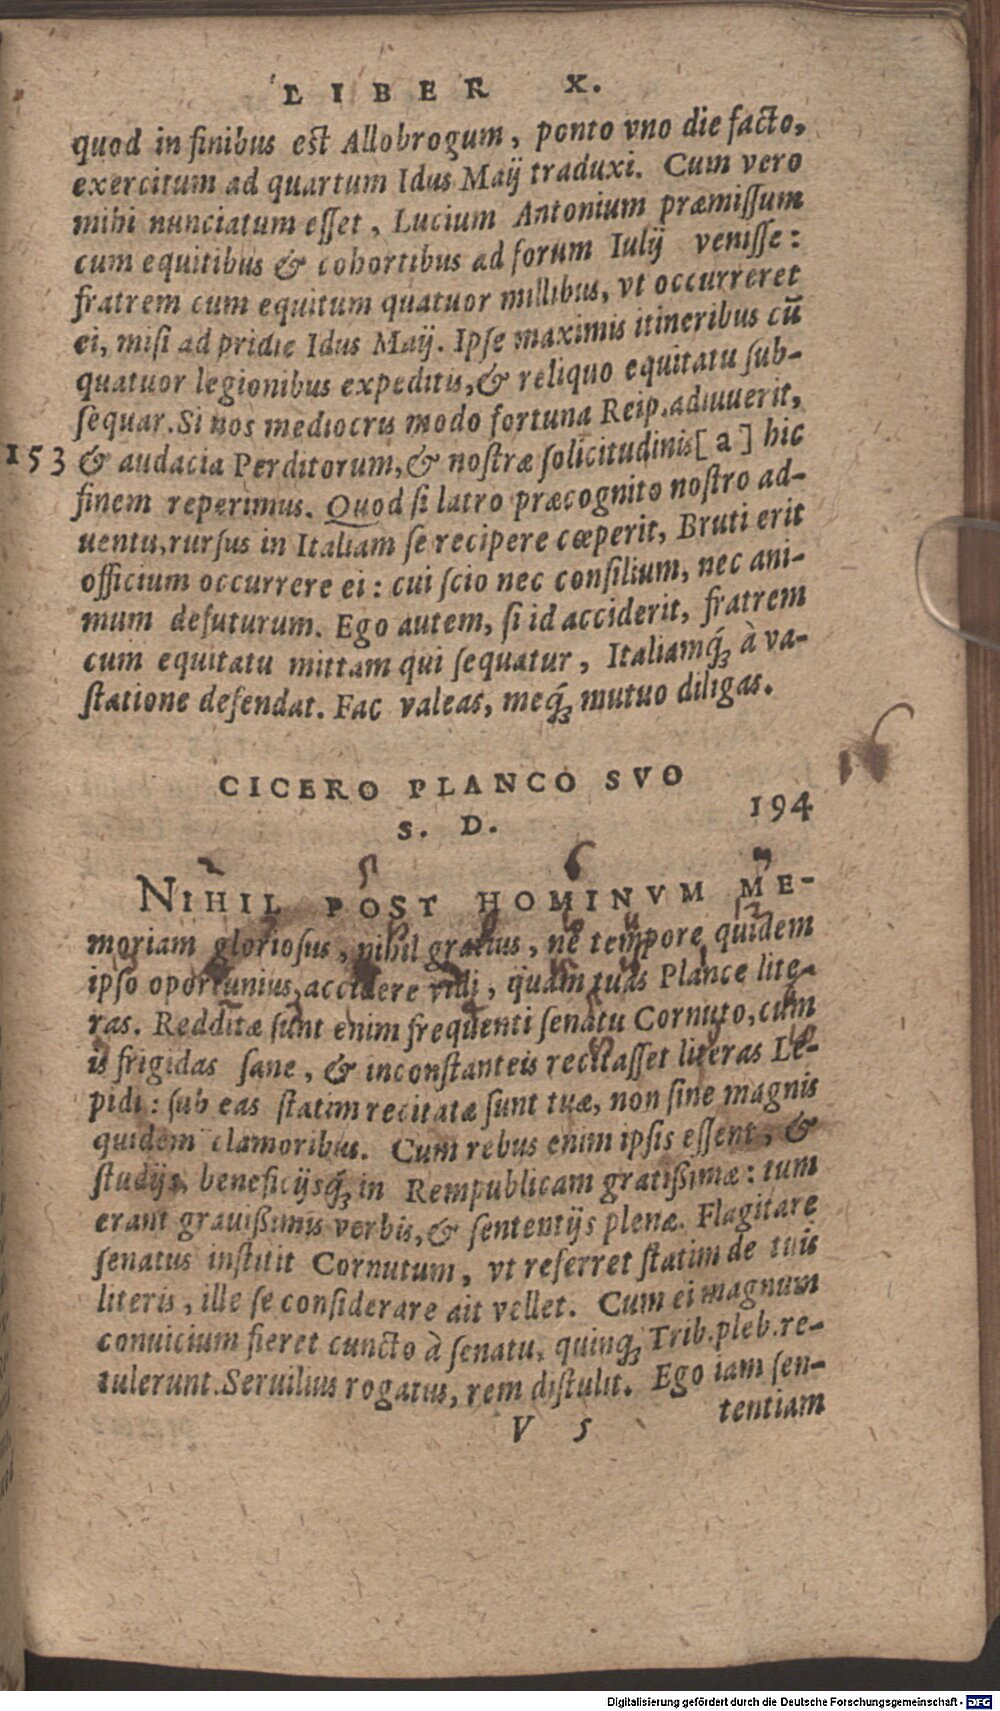 LIBER X.
quod in finibus est Allobrogum, ponto vno die facto,
exercitum ad quartum Idus Maij traduxi. Cum vero
mihi nunciatum esset, Lucium Antonium præmissum
cum equitibus & cohortibus ad forum Iulij venisse:
fratrem cum equitum quatuor millibus, vt occurreret
ei, misi ad pridie Idus Maij. Ipse maximis itineribus cū
quatuor legionibus expeditis, & reliquo equitatu sub-
sequar. Si nos mediocris modo fortuna Reip. adiuuerit,
153 & audacia Perditorum, & nostræ solicitudinis [a] hic
finem reperimus. Quod si latro præcognito nostro ad-
uentu, rursus in Italiam se recipere cœperit, Bruti erit
officium occurrere ei: cui scio nec consilium, nec ani-
mum defuturum. Ego autem, si id acciderit, fratrem
cum equitatu mittam qui sequatur, Italiamq́; à va-
statione defendat. Fac valeas, meq́; mutuo diligas.
CICERO PLANCO SVO
S. D.
194
NIHIL POST HOMINVM ME-
moriam gloriosus, nihil gratius, ne tempore quidem
ipso oportunius, accidere vidi, quam tuas Plance lite-
ras. Redditæ sunt enim frequenti senatu Cornuto, cum
is frigidas sane, & inconstanteis recitasset literas Le-
pidi: sub eas statim recitatæ sunt tuæ, non sine magnis
quidem clamoribus. Cum rebus enim ipsis essent, &
studijs, beneficijsq́; in Rempublicam gratissimæ: tum
erant grauissimis verbis, & sententijs plenæ. Flagitare
senatus institit Cornutum, vt referret statim de tuis
literis, ille se considerare ait vellet. Cum ei magnum
conuicium fieret cuncto à senatu, quinq; Trib. pleb. re-
tulerunt. Seruilius rogatus, rem distulit. Ego iam sen-
V 5 tentiam
Digitalisierung gefördert durch die Deutsche Forschungsgemeinschaft - DFG